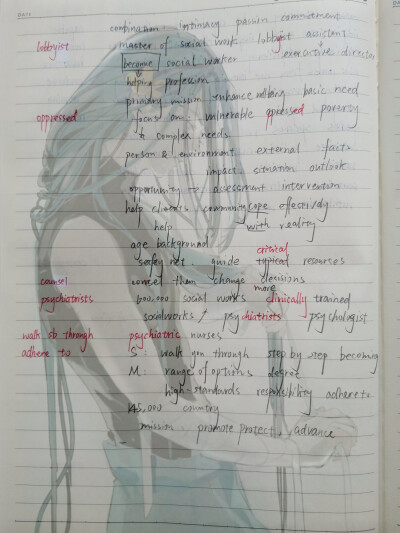 DATE
combination intimacy passion commitment
lobbyist master of social work lobbyist assistant
executive director
become social worker
helping profession
primary mission enhance wellbeing basic need
oppressed focus on vulnerable oppressed poverty
complex needs
person & environment external facts
impact situation outlook
opportunity to assessment intervention
help clients community cope effectively
help with reality
age background
critical
safety net guide typical resources
counsel counsel them change decisions
more
psychiatrists 600,000 social works clinically trained
socialworks psychiatrists psychologist
walk sb through psychiatric nurses
adhere to S: walk you through step by step becoming
M: range of options degree
high-standards responsibility adhere to
145,000 country
mission: promote protect advance